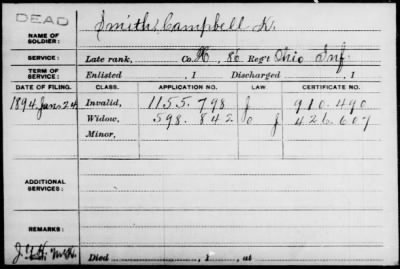 DEAD
NAME OF SOLDIER: Smith, Campbell K.
SERVICE: Late rank, Co. H, 86 Reg't Ohio Inf.
TERM OF SERVICE: Enlisted , 1 Discharged , 1
DATE OF FILING. CLASS. APPLICATION NO. LAW. CERTIFICATE NO.
1894 Jan 24 Invalid, 1155.798 J 910.490
Widow, 598.842 J 426.607
Minor,
ADDITIONAL SERVICES:
REMARKS:
Died , 1 , at